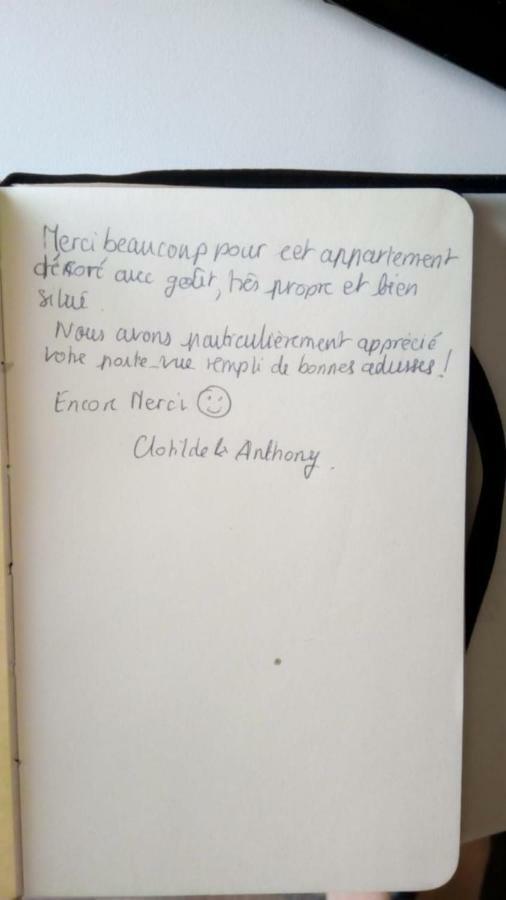 Merci beaucoup pour cet appartement
décoré avec goût, très propre et bien
situé.
Nous avons particulièrement apprécié
votre porte-vue rempli de bonnes adresses !
Encore Merci
Clotilde & Anthony.